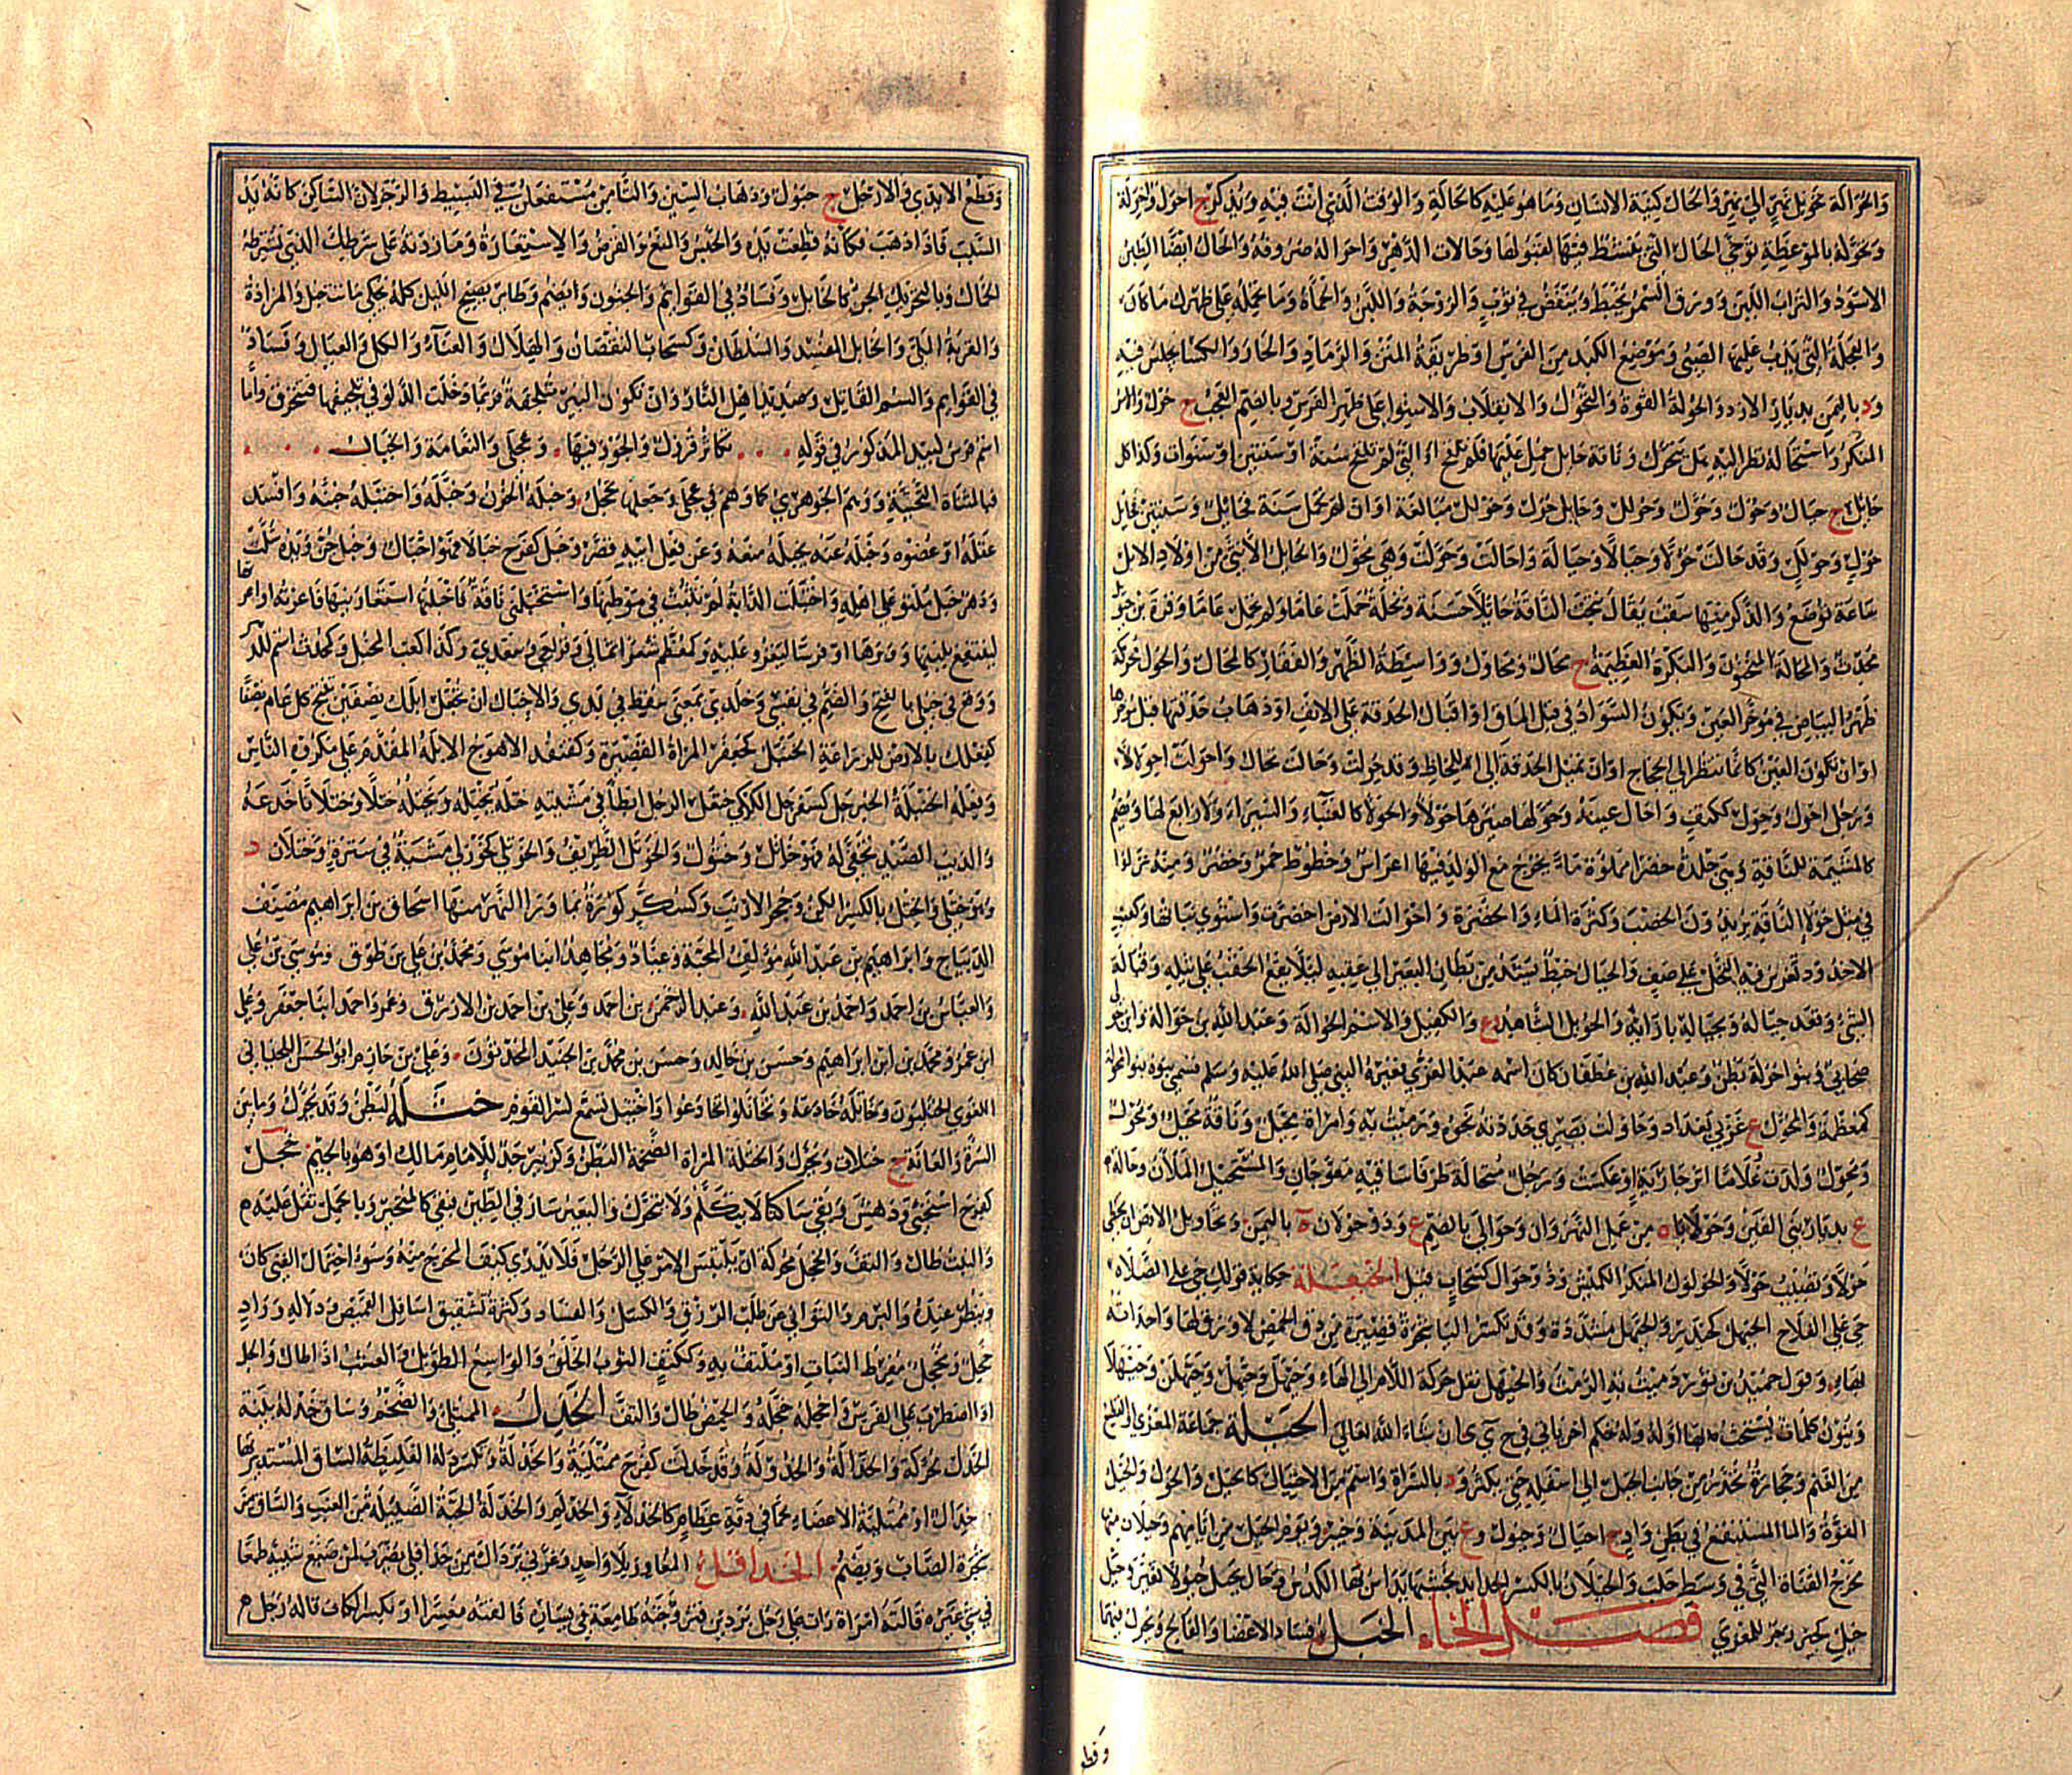 والحوالة تحويل نهر الى نهر والحال كينة الانسان وما هو عليه كالحالة والوقت الذي انت فيه ويذكر ج احوال واحولة
وتحوله بالموعظة توخى الحال التي ينشط فيها لقبولها وحالات الدهر واحواله صروفه والحال ايضا الطين
الاسود والتراب اللين وورق السمر يخبط وينفض في ثوب والزوجة واللبن والحمأة وما تحمله على ظهرك ما كان
والعجلة التي يدب عليها الصبي وموضع اللبد من الفرس او طريقة المتن والرماد الحار والكساء يحتش فيه
ود باليمن بديار الازد والحولة القوة والتحول والانقلاب والاستواء على ظهر الفرس وبالضم العجب ج حول والامر
المنكر واستحاله نظر اليه هل يتحرك وناقة حائل حمل عليها فلم تلقح او التي لم تلقح سنة او سنتين او سنوات وكذا كل
حائل ج حيال وحول وحول وحولل وحائل حول وحولل مبالغة او ان لم تحمل سنة فحائل وسنتين فحائل
حول وحولل وقد حالت حؤولا وحيالا وحيالة واحالت وحولت وهي محول والحائل الانثى من اولاد الابل
ساعة توضع والذكر منها سقب يقال نتجت الناقة حائلا حسنة ونخلة حملت عاما ولم تحمل عاما وقرة بن حويل
محدث والحالة المنجنون والبكرة العظيمة ج محال ومحاول وواسطة الظهر والفقار كالمحال والحول محركة
ظهور البياض في مؤخر العين ويكون السواد في قبل الماق او اقبال الحدقة على الانف او ذهاب حدقتها قبل مؤخرها
او ان تكون العين كانما تنظر الى الحجاج او ان تميل الحدقة الى اللحاظ وقد حولت وحالت تحال واحولت احولالا
ورجل احول وحول ككتف واحال عينه وحولها صيرها حولاء والحولاء كالعنباء والسيراء ولا رابع لها وتضم
كالمشيمة للناقة وهي جلدة خضراء مملوءة ماء يخرج مع الولد فيها اغراس وخطوط حمر وخضر ومنه نزلوا
في مثل حولاء الناقة يريدون الخصب وكثرة الماء والخضرة واحوالت الارض اخضرت واستوى نباتها وكعنب
الاخدود تغرس فيه النخل على صف والحيال خيط يشد من بطان البعير الى حقبه لئلا يقع الحقب على ثيله وقبالة
الشئ وقعد حياله وبحياله بازائه والحويل الشاهد ع والكفيل والاسم الحوالة وعبد الله بن حوالة وابن حولي
صحابي وبنو حوالة بطن وعبد الله بن غطفان كان اسمه عبد العزى فغيره النبي صلى الله عليه وسلم فسمي بنوه بنو المحولة
كمعظمة والمحول ع غربي بغداد وحاولت بصري حددته نحوه ورميت به وامراة محيل وناقة محيل ومحول
ومحول ولدت غلاما اثر جارية او عكست ورجل مستحالة طرفا ساقيه معوجان والمستحيل الملآن وحالة
ع بديار بني القين وحولايا ه من عمل النهروان وحوالى بالضم ع وذو حولان ع باليمن وتحاويل الارض ان تخطئ
حولا وتصيب حولا والحولول المنكر الكميش وذو حوال كسحاب قيل الحيعلة حكاية قولك حي على الصلاة
حي على الفلاح الحيهل كحيدر والحيهل مشددة وقد تكسر الياء شجرة قصيرة من دق الحمض لا ورق لها واحدته
بهاء وقول حميد بن ثور دميث به الرمث والحيهل نقل حركة اللام الى الهاء وحيهل وحيهل وحيهلن وحيهلا
وينون كلمات يستحث بها اولا وله حكم اخر ياتي في ح ي ي ان شاء الله تعالى الحيلة جماعة المعزى او القطيع
من الغنم وحجارة تحدر من جانب الجبل الى اسفله حتى تكثر ود بالسراة واسم من الاحتيال كالحيل والحول والحيل
القوة والماء المستنقع في بطن واد ج احيال وحيول وع بين المدينة وخيبر ويوم الحيل من ايامهم وحيلان منها
مخرج القناة التي في وسط حلب والحيلان بالكسر الحدايد بخشبها يداس بها الكدس وحال يحيل حيولا تغير وحيل
حيل كجير زجر للمعزى فصل الخاء الخبل فساد الاعضاء والفالج ويحرك فيهما
وقط
وقطع الايدي والارجل ج خبول وذهاب السين والتاء من مستفعلن في البسيط والرجز لان الساكن كانه يد
السبب فاذا ذهب فكانه قطعت يده والحبس والمنع والقرض والاستعارة وما زدته على شرطك الذي تشترطه
لك وبالتحريك الجن كالخابل وفساد في القوائم والجنون ويضم وطائر يصيح الليل كله يحكي ماتت خبل والمزادة
والقربة الملأى والخابل المفسد والشيطان وكسحاب النقصان والهلاك والعناء والكل والعيال وفساد
في القوائم والسم القاتل وصديد اهل النار وان تكون البئر متلجفة فربما دخلت الدلو في تلجيفها فتتخرق واما
اسم فرس لبيد المذكور في قوله تكاثر قرزل والجون فيها وعجلى والنعامة والخبال
فبالمثناة التحتية ووهم الجوهري كما وهم في عجلى وجعلها عجل وخبله الحزن وخبله واختبله جننه وافسد
عقله او عضوه وخبله عنه يخبله منعه وعن فعل ابيه قصر وخبل كفرح خبالا فهو اخبل وخبل جن ويده شلت
ودهر خبل ملتو على اهله واختبلت الدابة لم تثبت في موطنها واستخبلني ناقة فاخبلتها استعارنيها فاعرته او اعرتها
لينتفع بلبنها ووبرها او فرسا ليغزو عليه وكمعظم شعراء ثمالي وقريعي وسعدي وكذا كعب المخبل وكمحدث اسم للدهر
ووقع في خبلي بالفتح والضم في نفسي وخلدي بمعنى سقط في يدي والاخبال ان تجعل ابلك نصفين تنتج كل عام نصفا
كفعلك بالارض للزراعة الخنبل كجعفر المراة القصيرة وكقنفذ الاهوج الابله المقدم على مكروه الناس
وبغله الخبتلة الخبرجل كسفرجل الكركي خبعل الرجل ابطأ في مشيته ختله يختله ويختله ختلا وختلانا خدعه
والذئب الصيد تخفى له فهو خاتل وختول والخوتل الظريف والخوتلى كخوزلى مشية في سترة وختلان د
وهو ختلي والختل بالكسر الكن وجحر الارنب وكسكر كورة بما وراء النهر منها اسحاق بن ابراهيم مصنف
الديباج وابراهيم بن عبد الله مؤلف المحبة وعباد ومجاهد ابنا موسى ومحمد بن علي بن طوق وموسى بن علي
والعباس بن احمد واحمد بن عبد الله وعبد الرحمن بن احمد وعلي بن احمد بن الازرق وعمر واحمد ابنا جعفر وعلي
ابن عمر ومحمد بن ابراهيم وحسن بن خالد وحسن بن محمد بن الجنيد المحدثون وعلي بن حازم ابو الحسن اللحياني
اللغوي الختليون وخاتله خادعه وتخاتلوا تخادعوا واختتل تسمع لسر القوم خثلة البطن وقد تحرك ما بين
السرة والعانة ج خثلات وتحرك والخثلة المراة الضخمة البطن وكزبير جد للامام مالك او هو بالجيم خجل
كفرح استحيى ودهش وبقي ساكتا لا يتكلم ولا يتحرك والبعير سار في الطين فبقي كالمتحير وبالحمل ثقل عليه
والنبت طال والتف والخجل محركة ان يلتبس الامر على الرجل فلا يدري كيف المخرج منه وسوء احتمال الغنى كان
وبطر عنده والبرم والتواني عن طلب الرزق والكسل والفساد وكثرة تشقيق اسافل القميص وذلاذله وواد
خجل ومخجل مفرط النبات او ملتف به وككتف الثوب الخلق والواسع الطويل والعشب اذا طال والجل
اذا اضطرب على الفرس واخجله خجله والحمض طال والتف الخدل الممتلئ والضخم وساق خدلة بينة
الخدل محركة والخدالة والخدولة وقد خدلت كفرح ممتلئة والخدلة وتكسر داله الغليظة الساق المستديرتها
خدال او ممتلئة الاعضاء لحما في دقة عظام كالخدلاء والخدلم والخدلة الحبة الضئيلة من العنب والساق من
شجرة الصاب ويضم الخدافل المعاوز بلا واحد وغرني برداك من خدافلي يضرب لمن ضيع شيئه طمعا
في شئ غيره قالته امراة رات على رجل بردين فتزوجته طامعة في يساره فالفته معسرا او بكسر الكاف قاله رجل